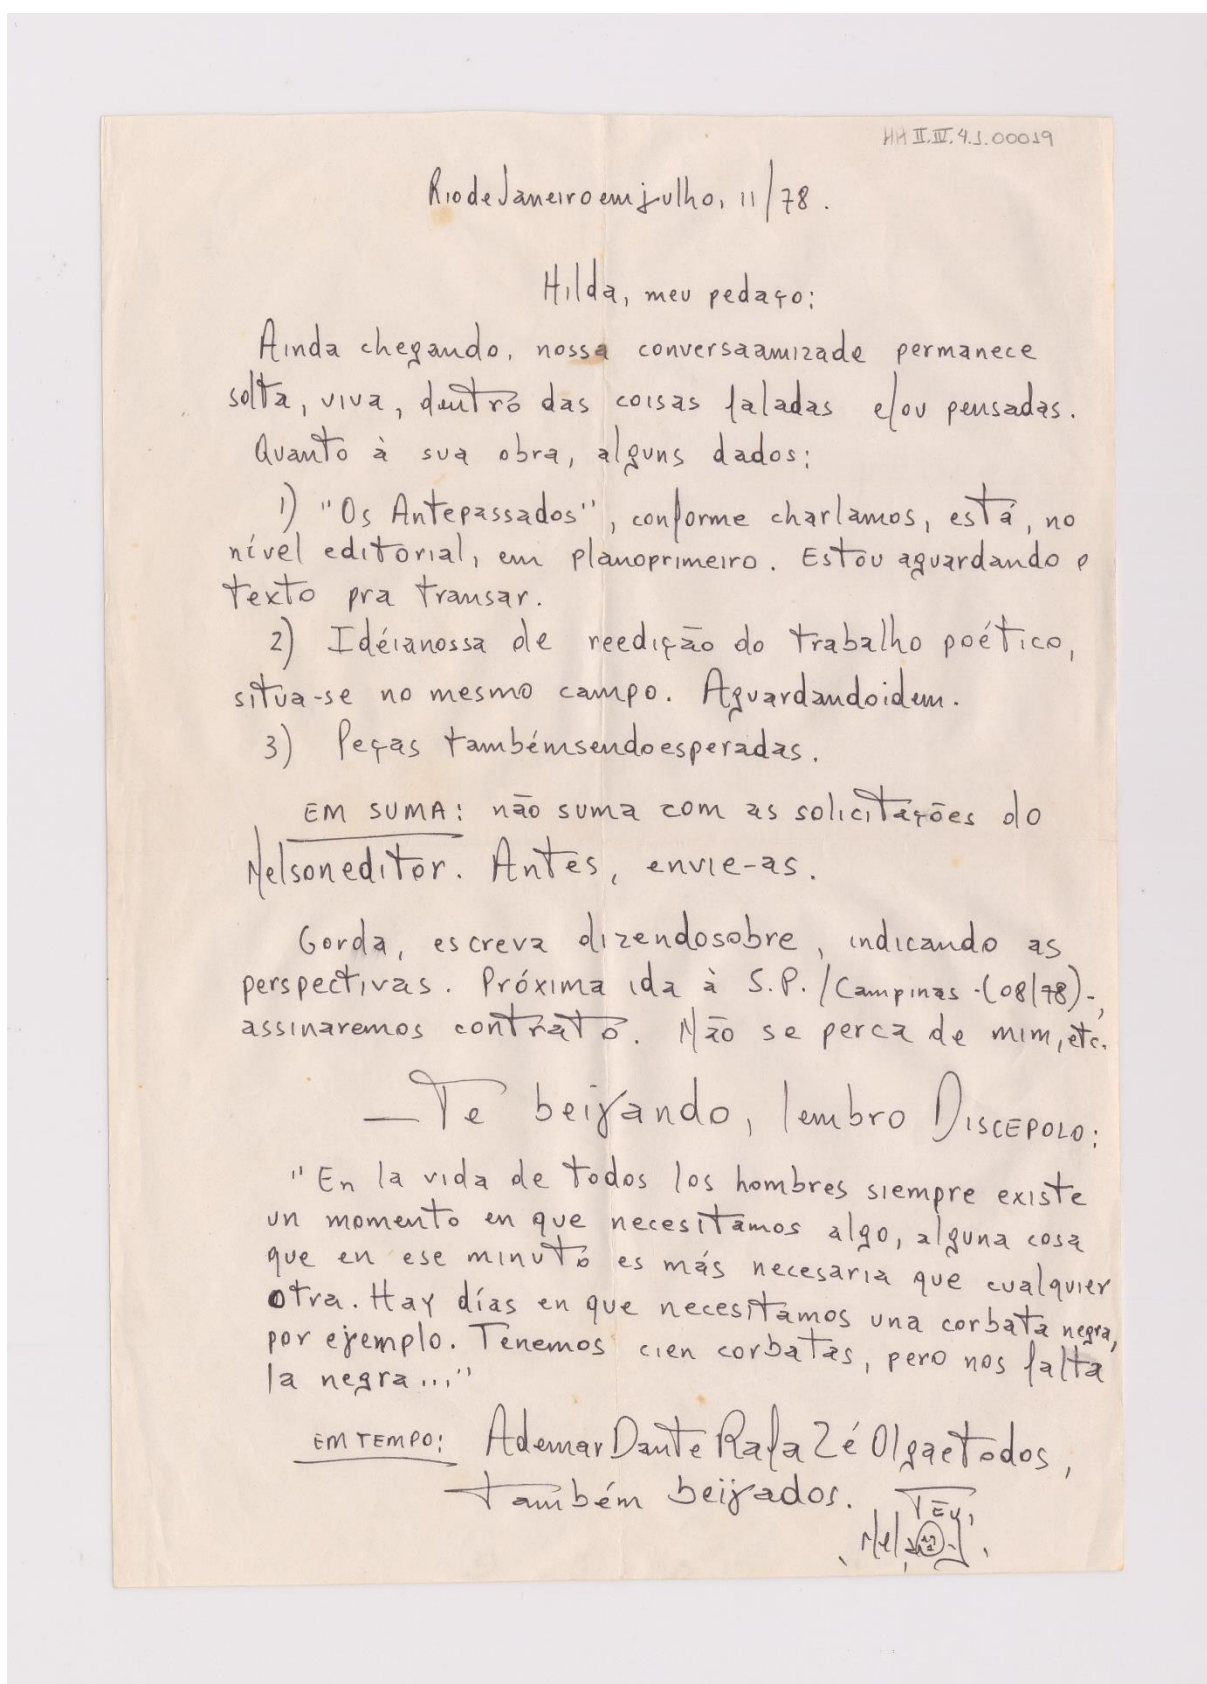 HH II.IV.4.1.00019
Rio de Janeiro em julho, 11/78.
Hilda, meu pedaço:
Ainda chegando, nossa conversaamizade permanece
solta, viva, dentro das coisas faladas e/ou pensadas.
Quanto à sua obra, alguns dados:
1) "Os Antepassados", conforme charlamos, está, no
nível editorial, em planoprimeiro. Estou aguardando o
texto pra transar.
2) Idéianossa de reedição do trabalho poético,
situa-se no mesmo campo. Aguardandoidem.
3) Peças tambémsendoesperadas.
EM SUMA: não suma com as solicitações do
Nelsoneditor. Antes, envie-as.
Gorda, escreva dizendosobre, indicando as
perspectivas. Próxima ida à S.P./Campinas -(08/78)-,
assinaremos contrato. Não se perca de mim, etc.
—Te beijando, lembro DISCEPOLO:
"En la vida de todos los hombres siempre existe
un momento en que necesitamos algo, alguna cosa
que en ese minuto es más necesaria que cualquier
otra. Hay días en que necesitamos una corbata negra,
por ejemplo. Tenemos cien corbatas, pero nos falta
la negra..."
EM TEMPO: AdemarDanteRafaZéOlgaetodos,
também beijados. Teu,